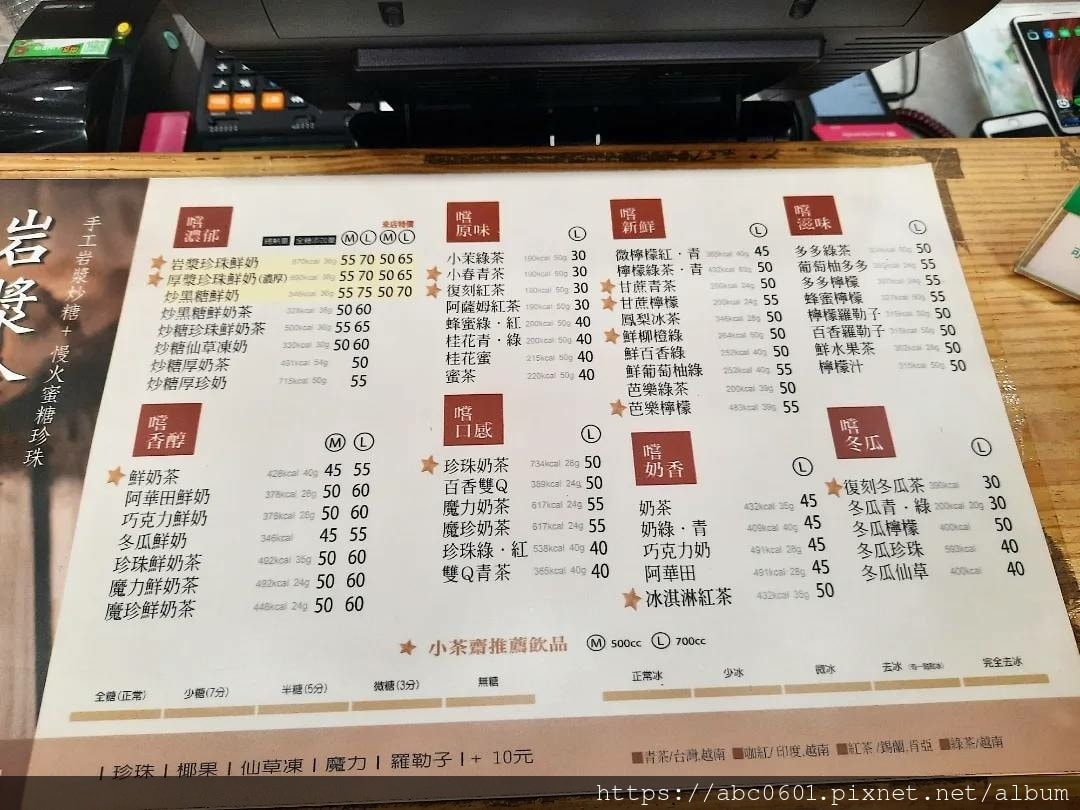 岩漿
手工岩漿炒糖+慢火蜜糖珍珠
嚐濃郁
總熱量 全糖添加量 Ⓜ Ⓛ Ⓜ Ⓛ
來店特價
岩漿珍珠鮮奶 36g 55 70 50 65
厚漿珍珠鮮奶(濃厚) 36g 55 70 50 65
炒黑糖鮮奶 346kcal 36g 55 75 50 70
炒黑糖鮮奶茶 328kcal 36g 50 60
炒糖珍珠鮮奶茶 500kcal 36g 55 65
炒糖仙草凍奶 330kcal 30g 50 60
炒糖厚奶茶 491kcal 54g 50
炒糖厚珍奶 715kcal 50g 55
嚐原味
Ⓛ
小茉綠茶 190kcal 50g 30
小春青茶 190kcal 50g 30
復刻紅茶 190kcal 50g 30
阿薩姆紅茶 190kcal 50g 30
蜂蜜綠·紅 200kcal 50g 40
桂花青·綠 200kcal 50g 40
桂花蜜 215kcal 50g 40
蜜茶 220kcal 50g 40
嚐新鮮
Ⓛ
微檸檬紅·青 40g 45
檸檬綠茶·青 50g 50
甘蔗青茶 200kcal 24g 50
甘蔗檸檬 200kcal 24g 55
鳳梨冰茶 346kcal 28g 50
鮮柳橙綠 264kcal 50g 50
鮮百香綠 252kcal 40g 50
鮮葡萄柚綠 252kcal 40g 55
芭樂綠茶 200kcal 39g 50
芭樂檸檬 483kcal 39g 55
嚐滋味
Ⓛ
多多綠茶 50
葡萄柚多多 24g 55
多多檸檬 55
蜂蜜檸檬 55
檸檬羅勒子 315kcal 50g 50
百香羅勒子 315kcal 50g 50
鮮水果茶 302kcal 28g 50
檸檬汁 315kcal 50g 50
嚐香醇
Ⓜ Ⓛ
鮮奶茶 428kcal 40g 45 55
阿華田鮮奶 378kcal 28g 50 60
巧克力鮮奶 378kcal 28g 50 60
冬瓜鮮奶 346kcal 45 55
珍珠鮮奶茶 492kcal 35g 50 60
魔力鮮奶茶 492kcal 24g 50 60
魔珍鮮奶茶 448kcal 24g 50 60
嚐口感
Ⓛ
珍珠奶茶 734kcal 28g 50
百香雙Q 389kcal 24g 50
魔力奶茶 617kcal 24g 55
魔珍奶茶 617kcal 24g 55
珍珠綠·紅 538kcal 40g 40
雙Q青茶 365kcal 40g 40
嚐奶香
Ⓛ
奶茶 432kcal 35g 45
奶綠·青 409kcal 40g 45
巧克力奶 491kcal 28g 45
阿華田 491kcal 28g 45
冰淇淋紅茶 432kcal 35g 50
嚐冬瓜
Ⓛ
復刻冬瓜茶 390kcal 30
冬瓜青·綠 200kcal 20g 30
冬瓜檸檬 400kcal 50
冬瓜珍珠 593kcal 40
冬瓜仙草 400kcal 40
小茶齋推薦飲品 Ⓜ 500cc Ⓛ 700cc
全糖(正常) 少糖(7分) 半糖(5分) 微糖(3分) 無糖
正常冰 少冰 微冰 去冰 完全去冰
|珍珠|椰果|仙草凍|魔力|羅勒子|+ 10元
青茶/台灣.越南 咖紅/印度.越南 紅茶/錫蘭.肯亞 綠茶/越南
https://abc0601.pixnet.net/album